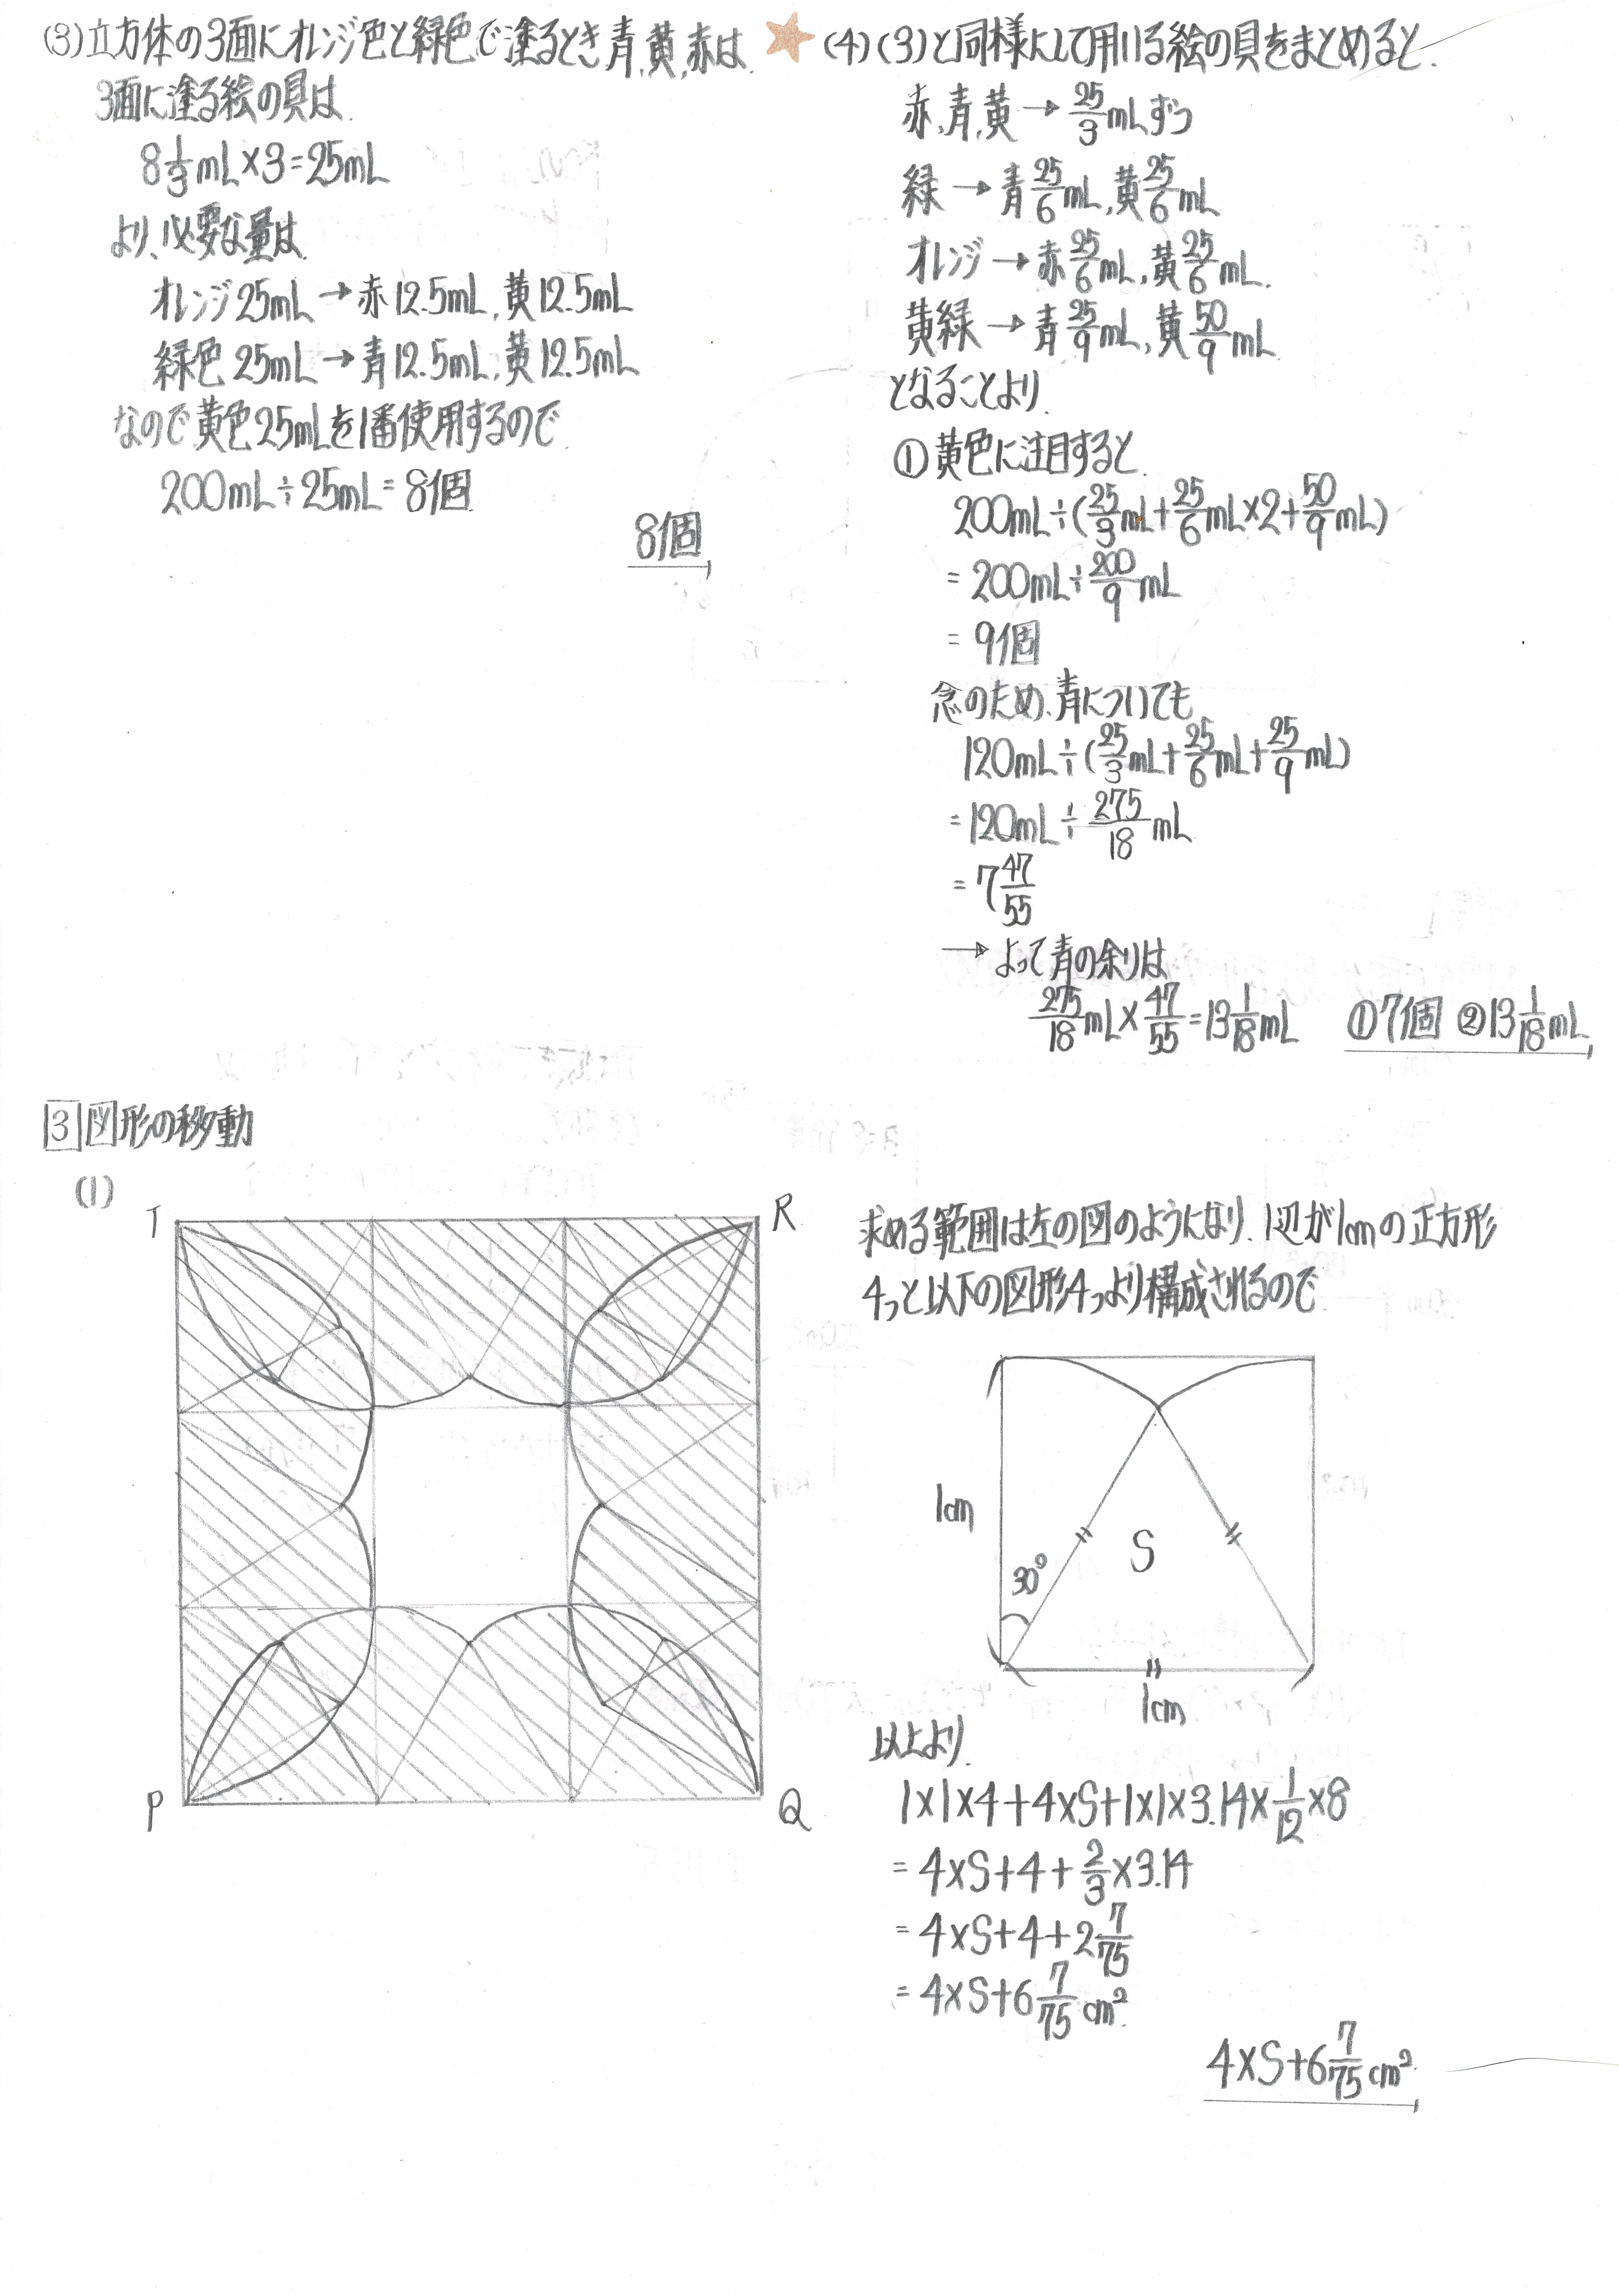 (3)立方体の3面にオレンジ色と緑色で塗るとき青,黄,赤は、
3面に塗る絵の具は、
8 1/3 mL×3=25mL
より、必要な量は、
オレンジ25mL→赤12.5mL,黄12.5mL
緑色25mL→青12.5mL,黄12.5mL
なので黄色25mLを1番使用するので、
200mL÷25mL=8個
8個
(4)(3)と同様にして用いる絵の具をまとめると、
赤,青,黄→25/3mLずつ
緑→青25/6mL,黄25/6mL
オレンジ→赤25/6mL,黄25/6mL.
黄緑→青25/9mL,黄50/9mL
となることより、
①黄色に注目すると、
200mL÷(25/3mL+25/6mL×2+50/9mL)
=200mL÷200/9mL
=9個
念のため、青についても
120mL÷(25/3mL+25/6mL+25/9mL)
=120mL÷275/18mL
=7 47/55
→よって青の余りは
275/18mL×47/55=13 1/18mL
①7個 ②13 1/18mL
3 図形の移動
(1)
T
R
P
Q
求める範囲は左の図のようになり、1辺が1cmの正方形
4つと以下の図形4つより構成されるので
1cm
30°
S
1cm
以上より、
1×1×4+4×S+1×1×3.14×1/12×8
=4×S+4+2/3×3.14
=4×S+4+2 7/75
=4×S+6 7/75cm²
4×S+6 7/75cm²